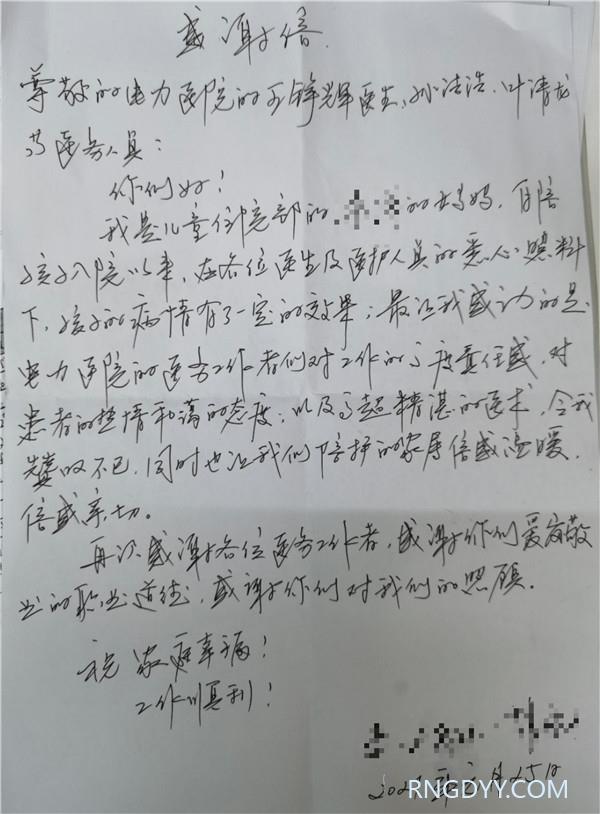 感谢信
尊敬的电力医院的王锋辉医生、孙洁浩、叶清龙
等医务人员：
你们好！
我是儿童住院部的 的妈妈，自陪
孩子入院以来，在各位医生及医护人员的悉心照料
下，孩子的病情有了一定的效果；最让我感动的是
电力医院的医务工作者们对工作的高度责任感，对
患者的热情和蔼的态度，以及高超精湛的医术，令我
赞叹不已，同时也让我们陪护的家属倍感温暖，
倍感亲切。
再次感谢各位医务工作者，感谢你们爱岗敬
业的职业道德，感谢你们对我们的照顾。
祝家庭幸福！
工作顺利！
月25日
RNGDYY.COM